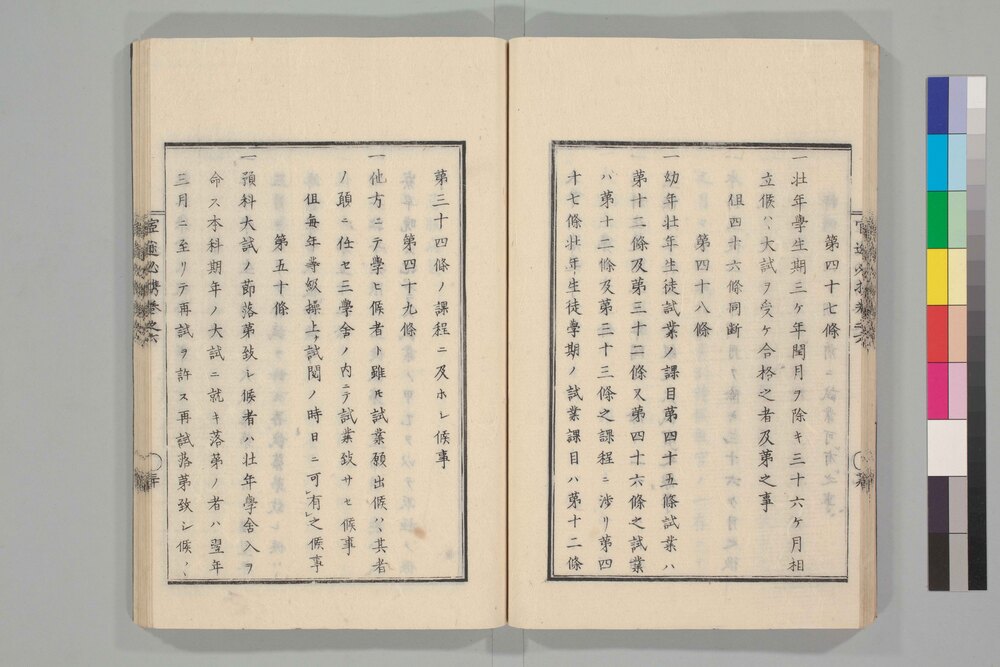 第四十七條
一壮年學生期三ケ年閏月ヲ除キ三十六ケ月相
立候ハ丶大試ヲ受ケ合格之者及第之事
但四十六條同断
第四十八條
一幼年壮年生徒試業ノ課目第四十五條試業ハ
第十二條及第三十二條又第四十六條之試業
ハ第十二條及第三十三條之課程ニ渉リ第四
十七條壮年生徒學期ノ試業課目ハ第十二條
第三十四條ノ課程ニ及ホシ候事
第四十九條
一他方ニテ學ヒ候者ト雖𪜈試業願出候ハ丶其者
ノ願ニ仕セ三學舎ノ内ニテ試業致サセ候事
但毎年等級操上ケ試閲ノ時日ニ可有之候事
第五十條
一預科大試ノ節落第致シ候者ハ壮年學舎入ヲ
命ス本科期年ノ大試ニ就キ落第ノ者ハ翌年
三月ニ至リテ再試ヲ許ス再試落第致シ候ハ丶